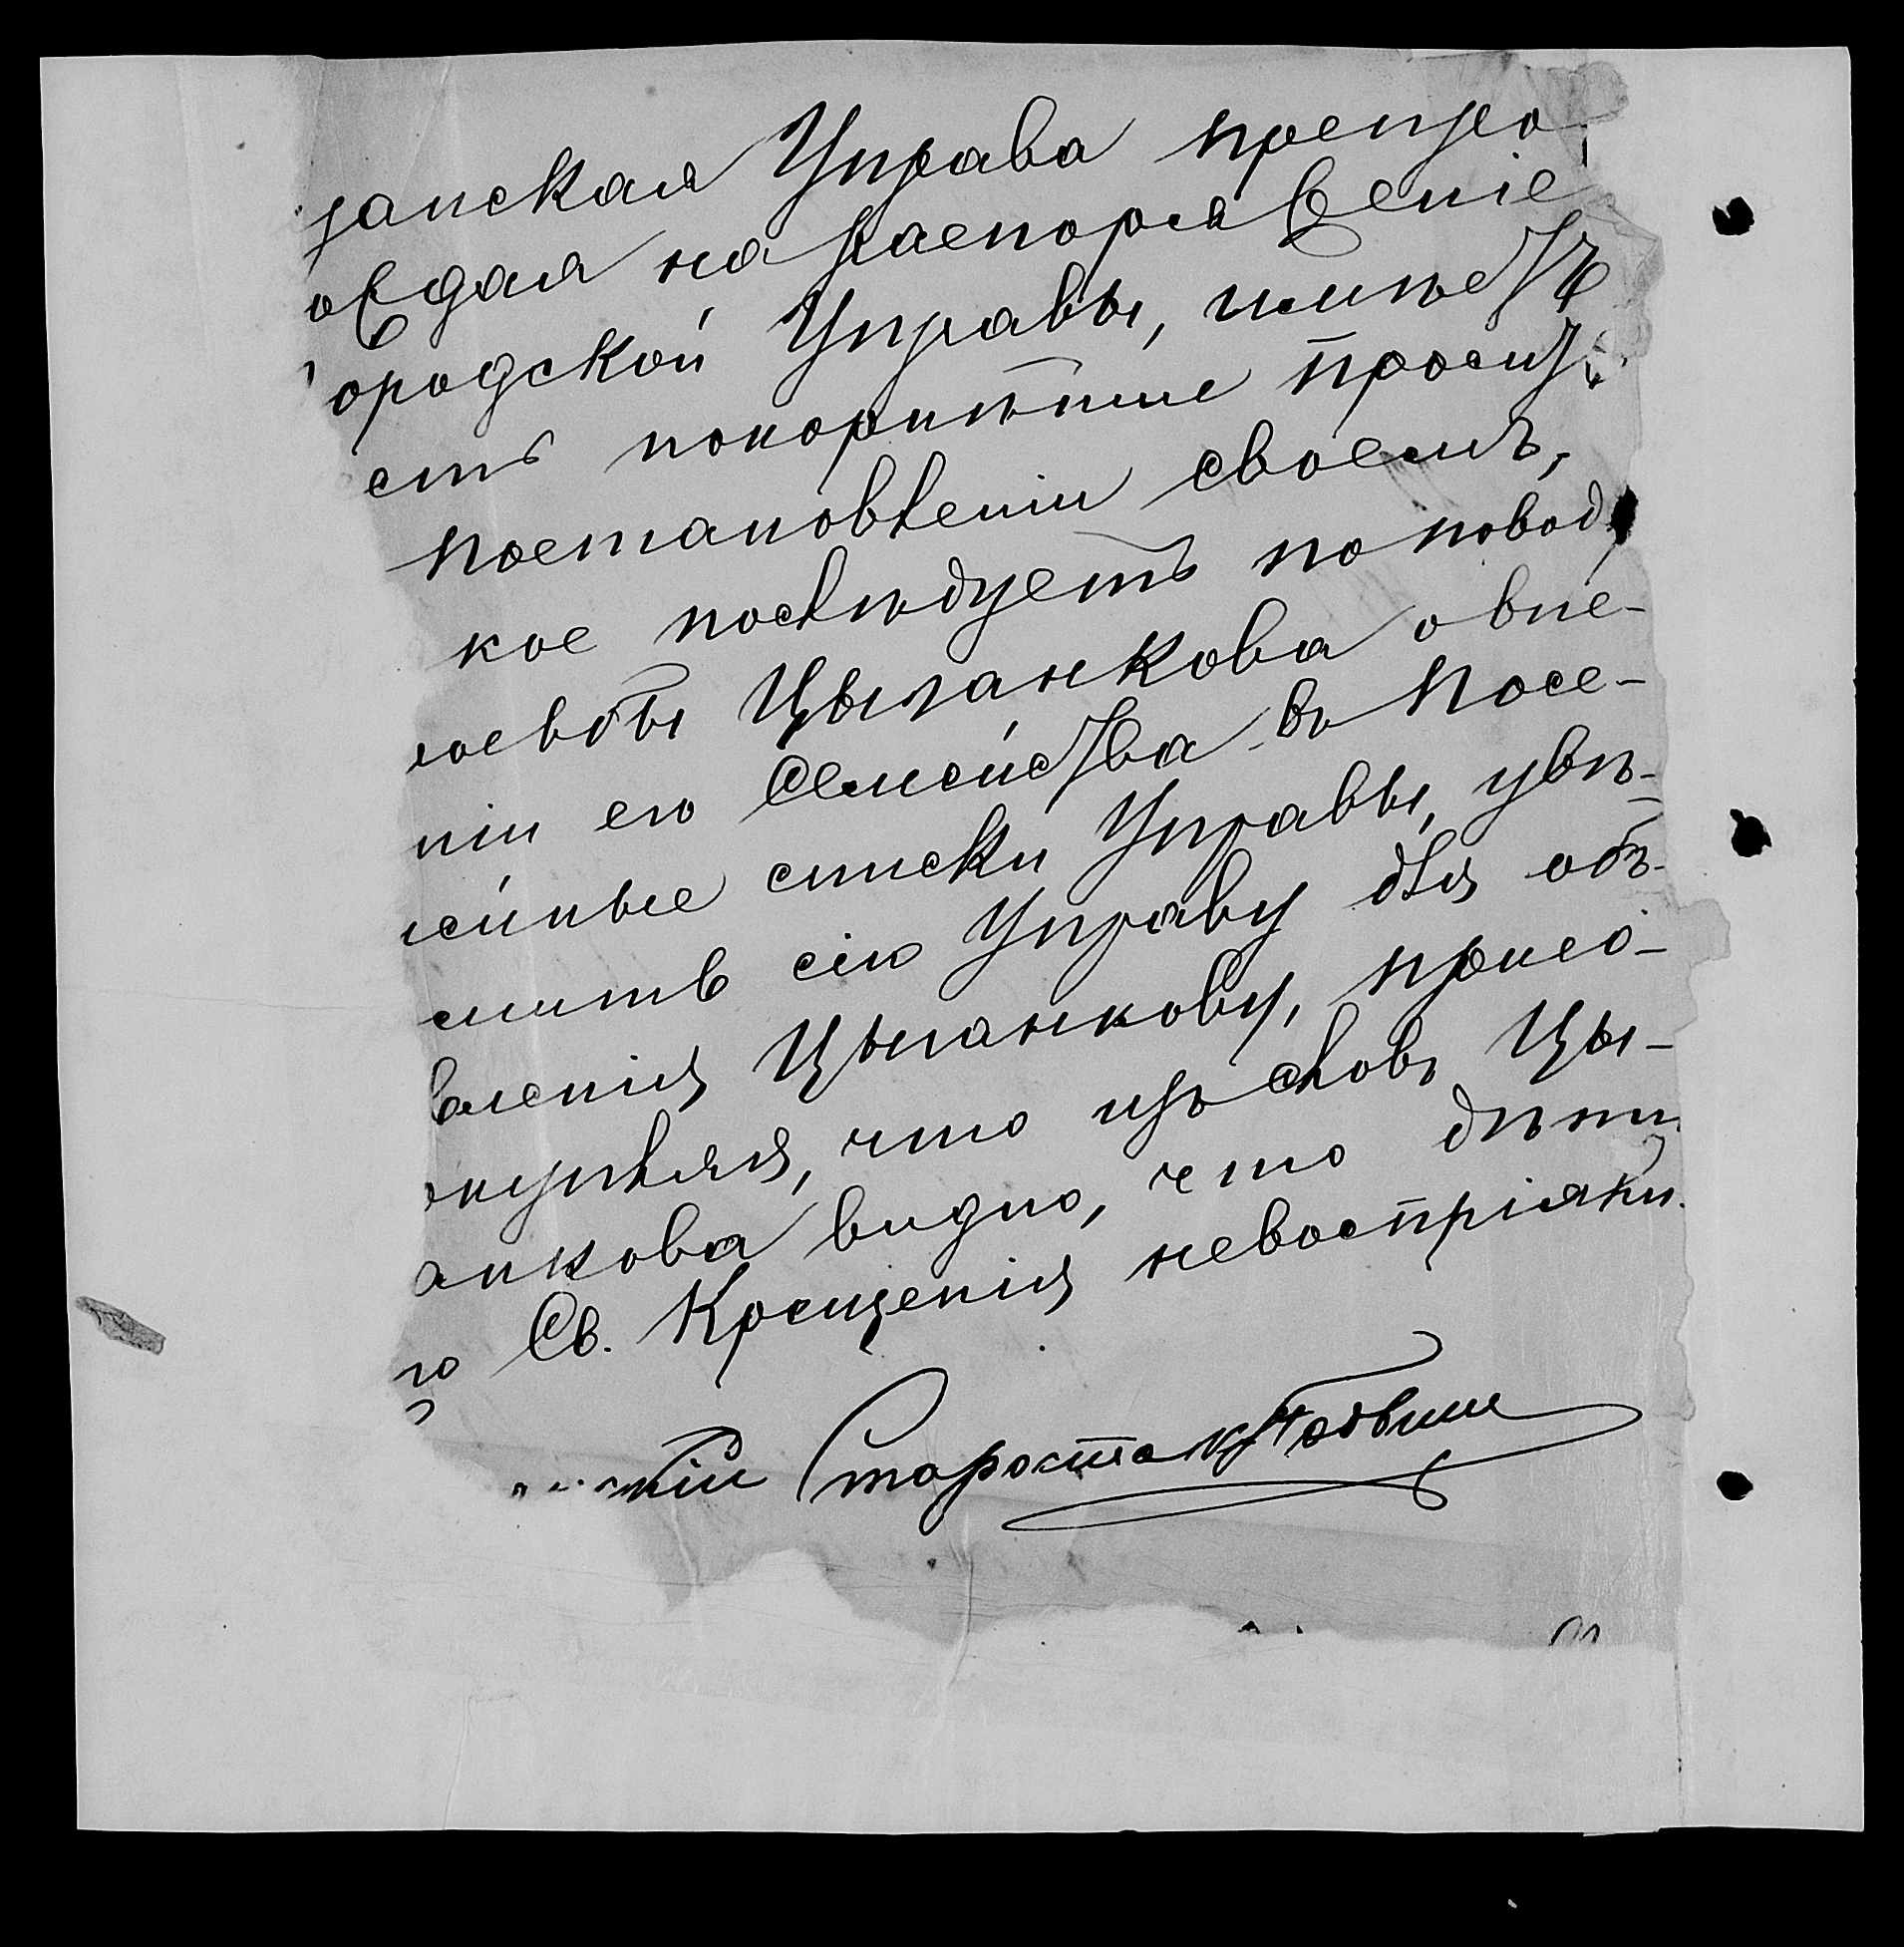 щанская Управа препро-
ождая на распоряженіе
ородской Управы, имѣетъ
есть покорнѣйше просить
постановленіи своемъ,
кое послѣдуетъ по повод
росьбы Цыганкова о вне-
ніи его Семейства въ Посе-
мейные списки Управы, увѣ-
омить сію Управу для объ-
вленія Цыганкову, присо-
окупляя, что изъ словъ Цы-
анкова видно, что дѣти
го Св. Крещенія невоспріяли.
нскій Староста